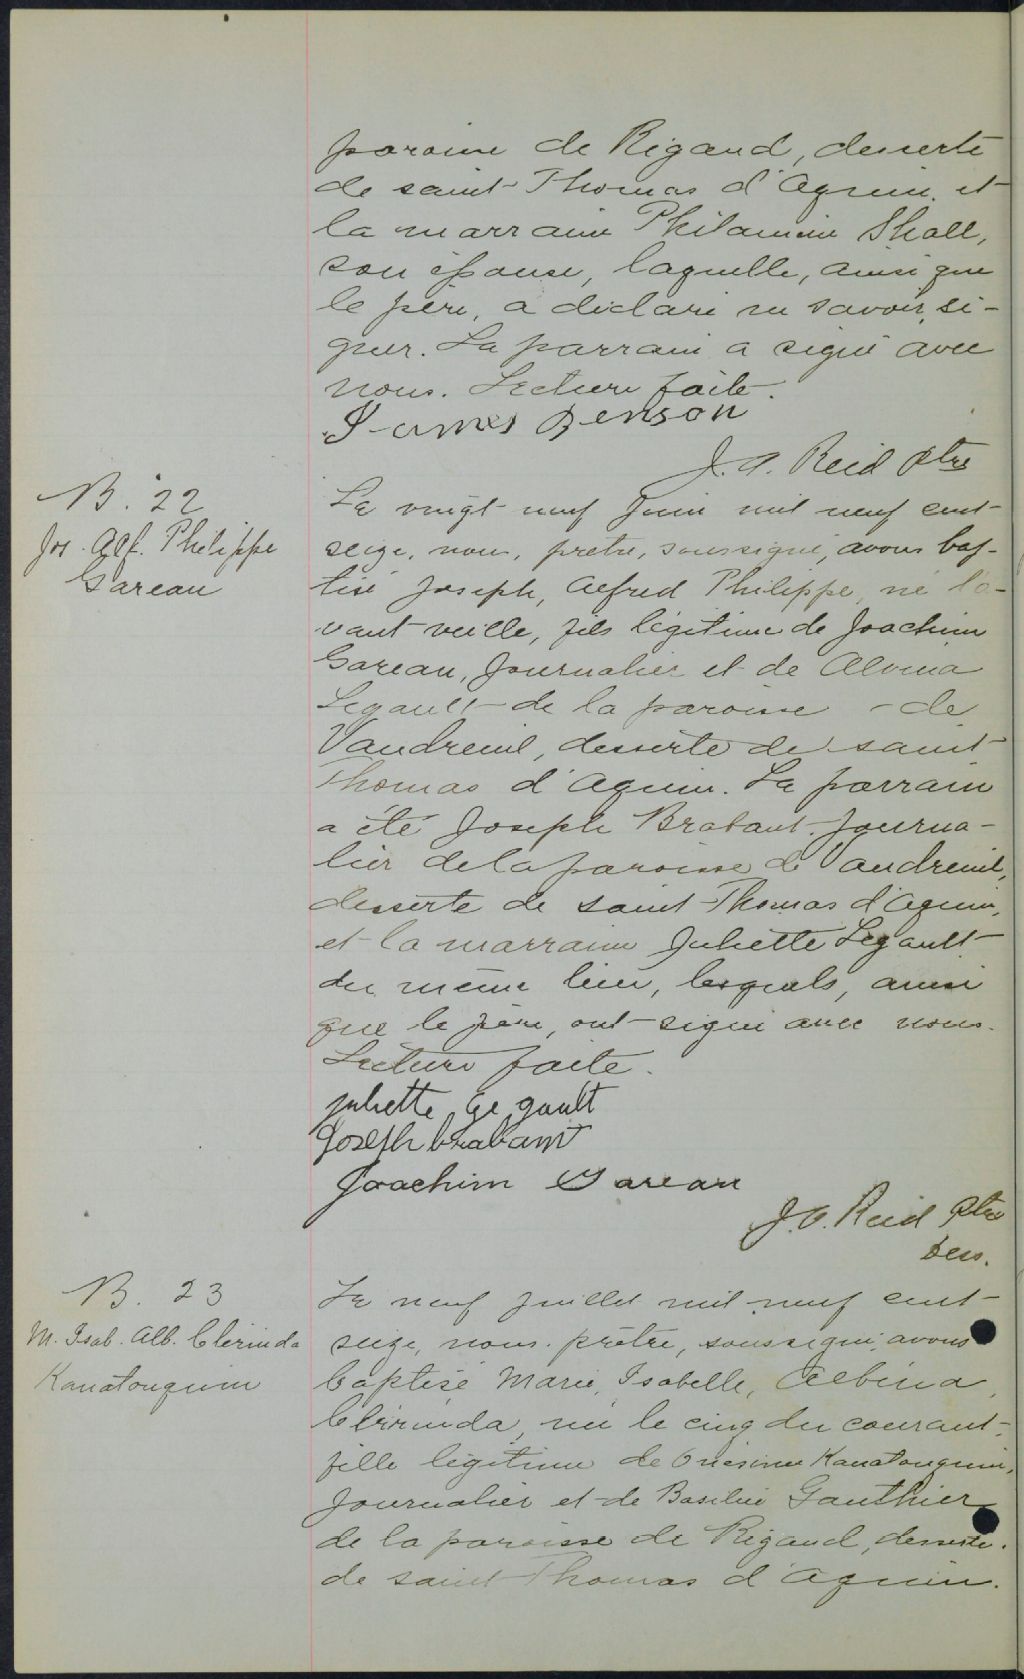 paroisse de Rigaud, desserte
de saint Thomas d'Aquin. et
la marraine Philamine Shall,
son épouse, laquelle, ainsi que
le père, a déclaré ne savoir si-
gner. Le parrain a signé avec
nous. Lecture faite.
James Benson
J. A. Reid Ptre
B. 22
Jos. Alf. Philippe
Gareau
Le vingt neuf Juin mil neuf cent
seize, nous, prêtre, soussigné, avons bap-
tisé Joseph, Alfred Philippe, né l'a-
vant veille, fils légitime de Joachim
Gareau, Journalier et de Alvina
Legault de la paroisse - de
Vaudreuil, desserte de saint
Thomas d'Aquin. Le parrain
a été Joseph Brabant. Journa-
lier de la paroisse de Vaudreuil,
desserte de saint Thomas d'Aquin,
et la marraine Juliette Legault
du même lieu, lesquels, ainsi
que le père, ont signé avec nous.
Lecture faite.
juliette Le gault
Joseph brabant
Joachim Gareau
J. A. Reid Ptre
Dess.
B. 23
M. Isab. Alb. Clerinda
Kanatonquin
Le neuf Juillet mil neuf cent
seize, nous. prêtre, soussigné, avons
baptisé Marie, Isabelle, Albina,
Clerinda, née le cinq du courant,
fille légitime de Onésime Kanatonquin,
Journalier et de Basilie Gauthier
de la paroisse de Rigaud, desserte.
de saint Thomas d'Aquin.